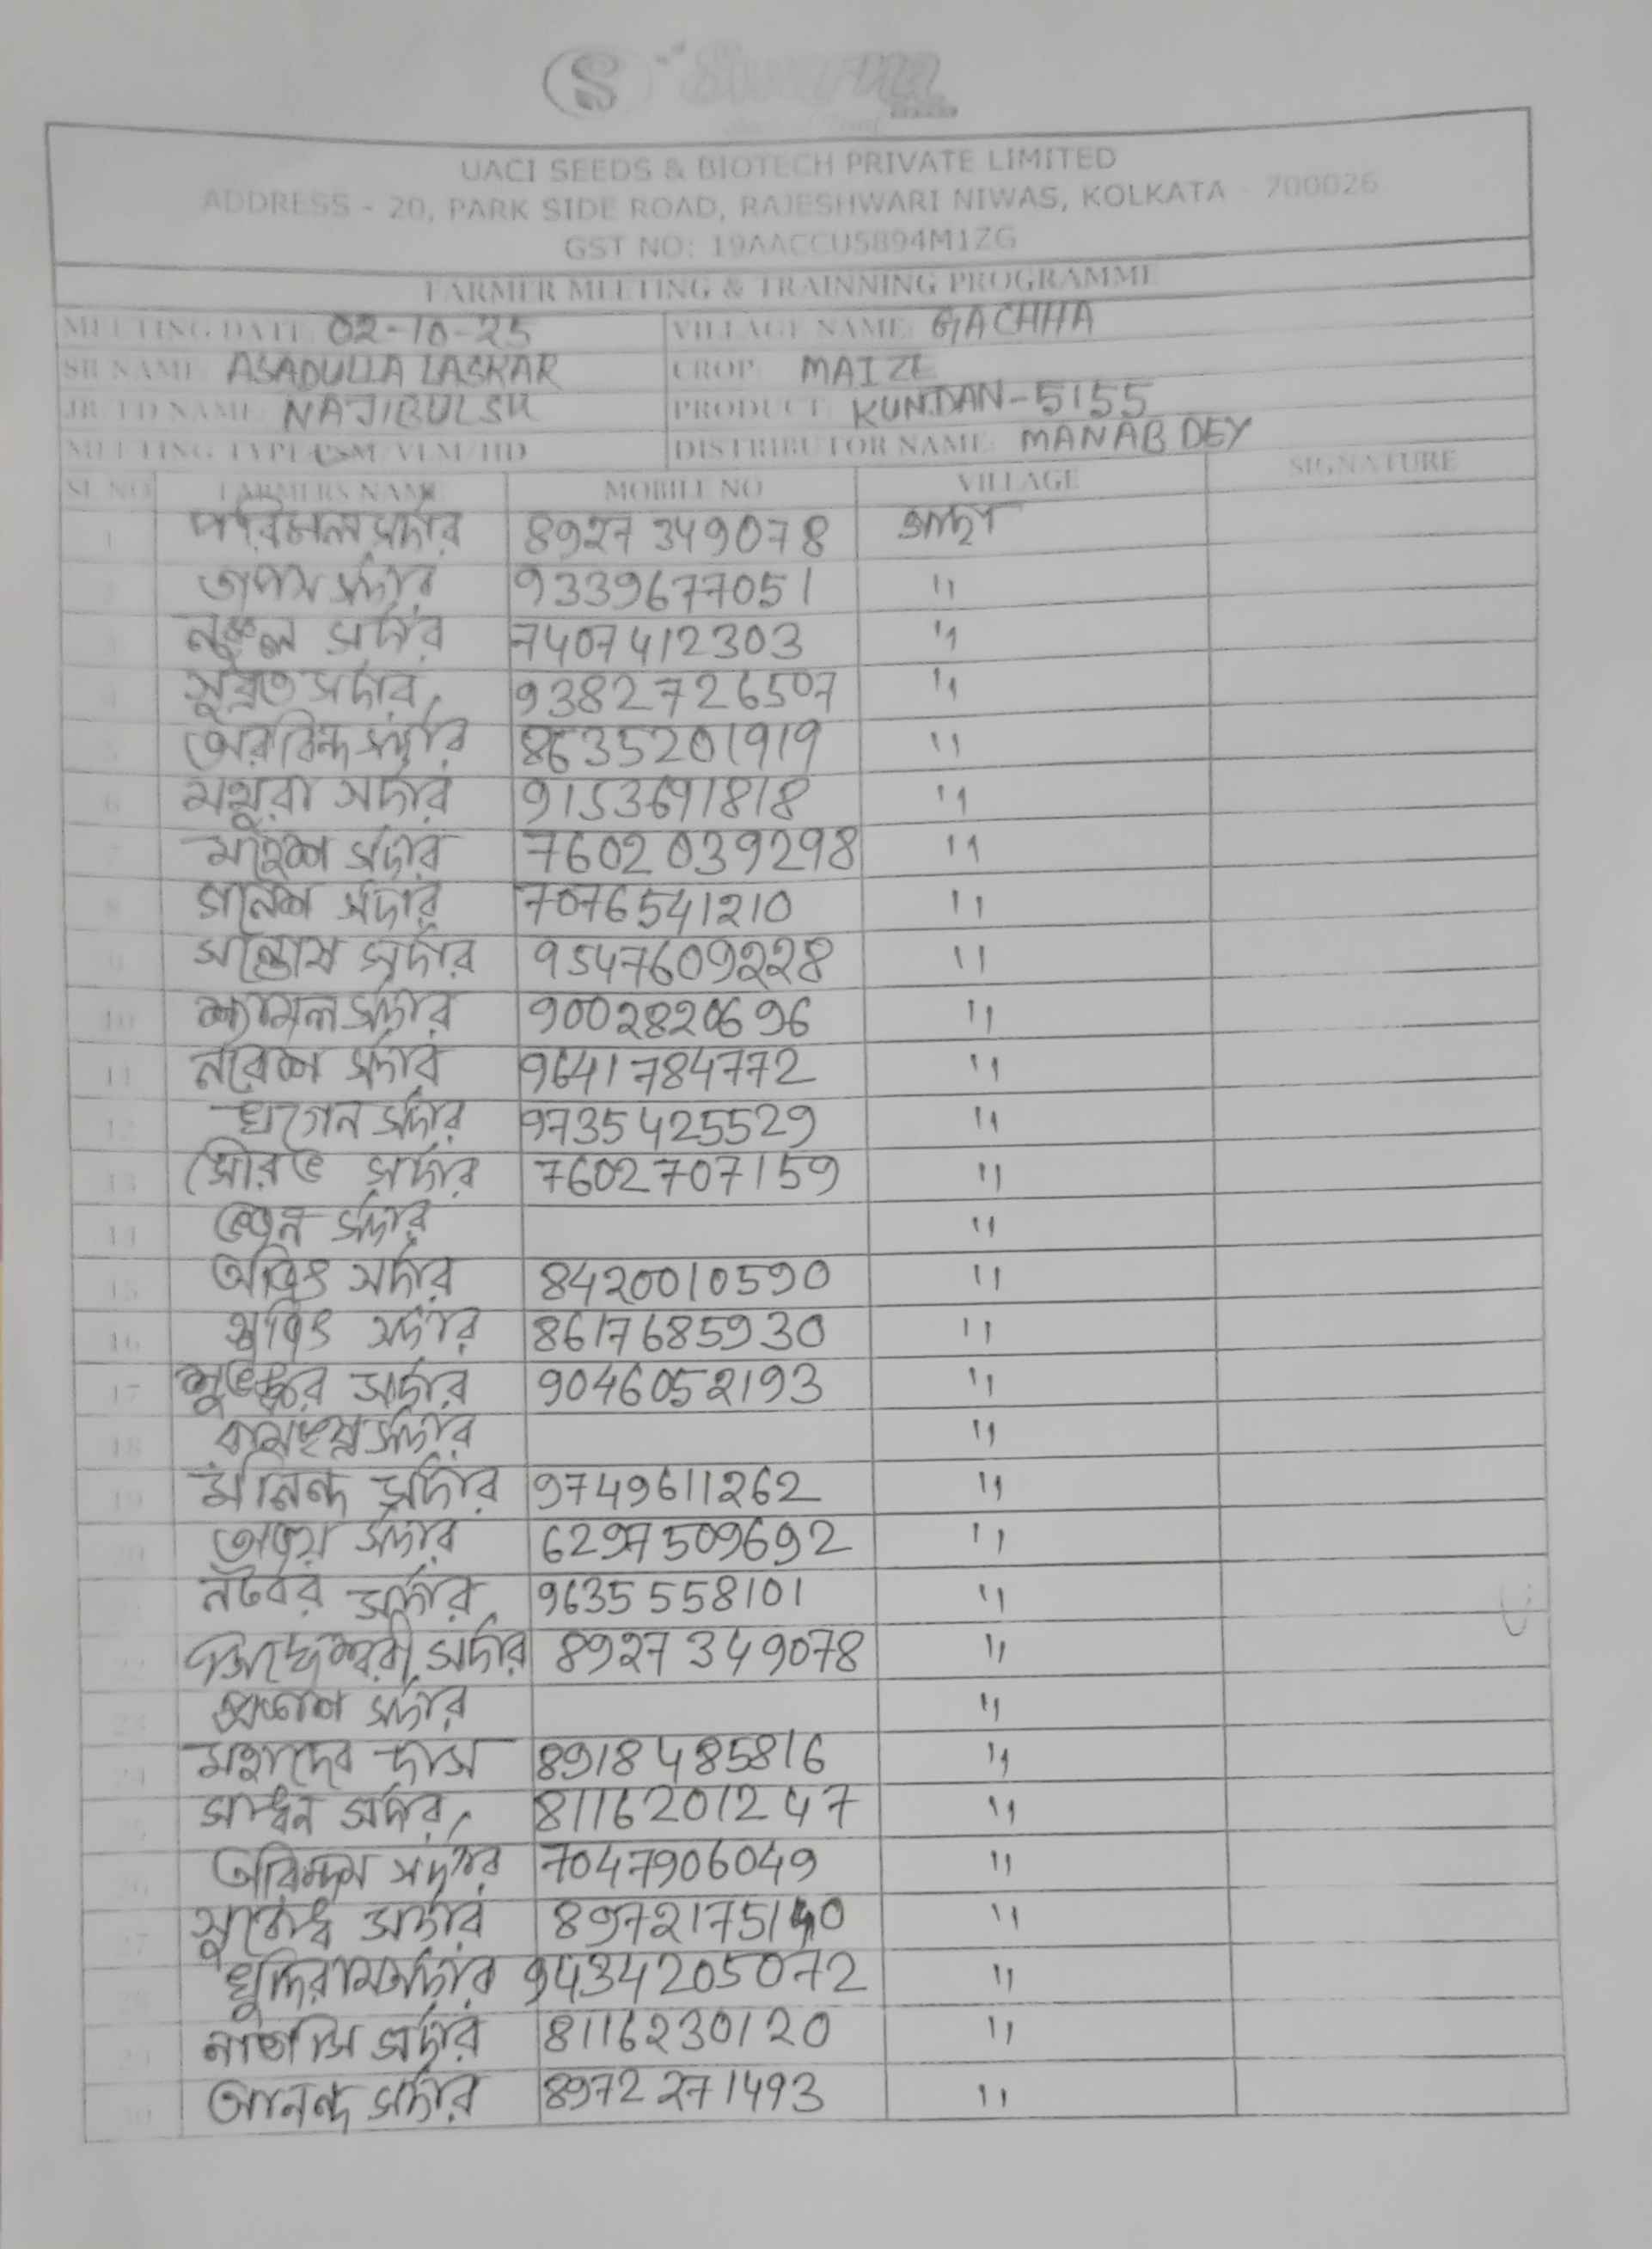 S
UACI SEEDS & BIOTECH PRIVATE LIMITED
ADDRESS - 20, PARK SIDE ROAD, RAJESHWARI NIWAS, KOLKATA - 700026
GST NO: 19AACCU5894M1ZG
FARMER MEETING & TRAINNING PROGRAMME
MEETING DATE: 02-10-25 VILLAGE NAME: GACHHA
SR NAME: ASADULLA LASKAR CROP: MAIZE
JR/TD NAME: NAJIBUL SK PRODUCT: KUNDAN-5155
MEETING TYPE: /VLM/HD DISTRIBUTOR NAME: MANAB DEY
SL NO FARMERS NAME MOBILE NO VILLAGE SIGNATURE
1 পরিমল সর্দার 8927349078
2 তাপস সর্দার 9339677051 "
3 নকুল সর্দার 7407412303 "
4 সুব্রত সর্দার 9382726507 "
5 অরবিন্দ সর্দার 8635201919 "
6 মথুরা সর্দার 9153691818 "
7 মহেশ সর্দার 7602039298 "
8 গনেশ সর্দার 7076541210 "
9 সন্তোষ সর্দার 9547609228 "
10 শ্যামল সর্দার 9002820696 "
11 নরেশ সর্দার 9641784772 "
12 খগেন সর্দার 9735425529 "
13 সৌরভ সর্দার 7602707159 "
14 সর্দার "
15 অজিৎ সর্দার 8420010590 "
16 সুজিৎ সর্দার 8617685930 "
17 শুভঙ্কর সর্দার 9046052193 "
18 সর্দার "
19 মনিন্দ্র সর্দার 9749611262 "
20 অজয় সর্দার 6297509692 "
21 নটবর সর্দার 9635558101 "
22 সিদ্ধেশ্বরী সর্দার 8927349078 "
23 প্রকাশ সর্দার "
24 মহাদেব দাস 8918485816 "
25 সাধন সর্দার 8116201247 "
26 অরিন্দম সর্দার 7047906049 "
27 সুবোধ সর্দার 8972175140 "
28 খুদিরাম সর্দার 9434205072 "
29 সর্দার 8116230120 "
30 আনন্দ সর্দার 8972271493 "